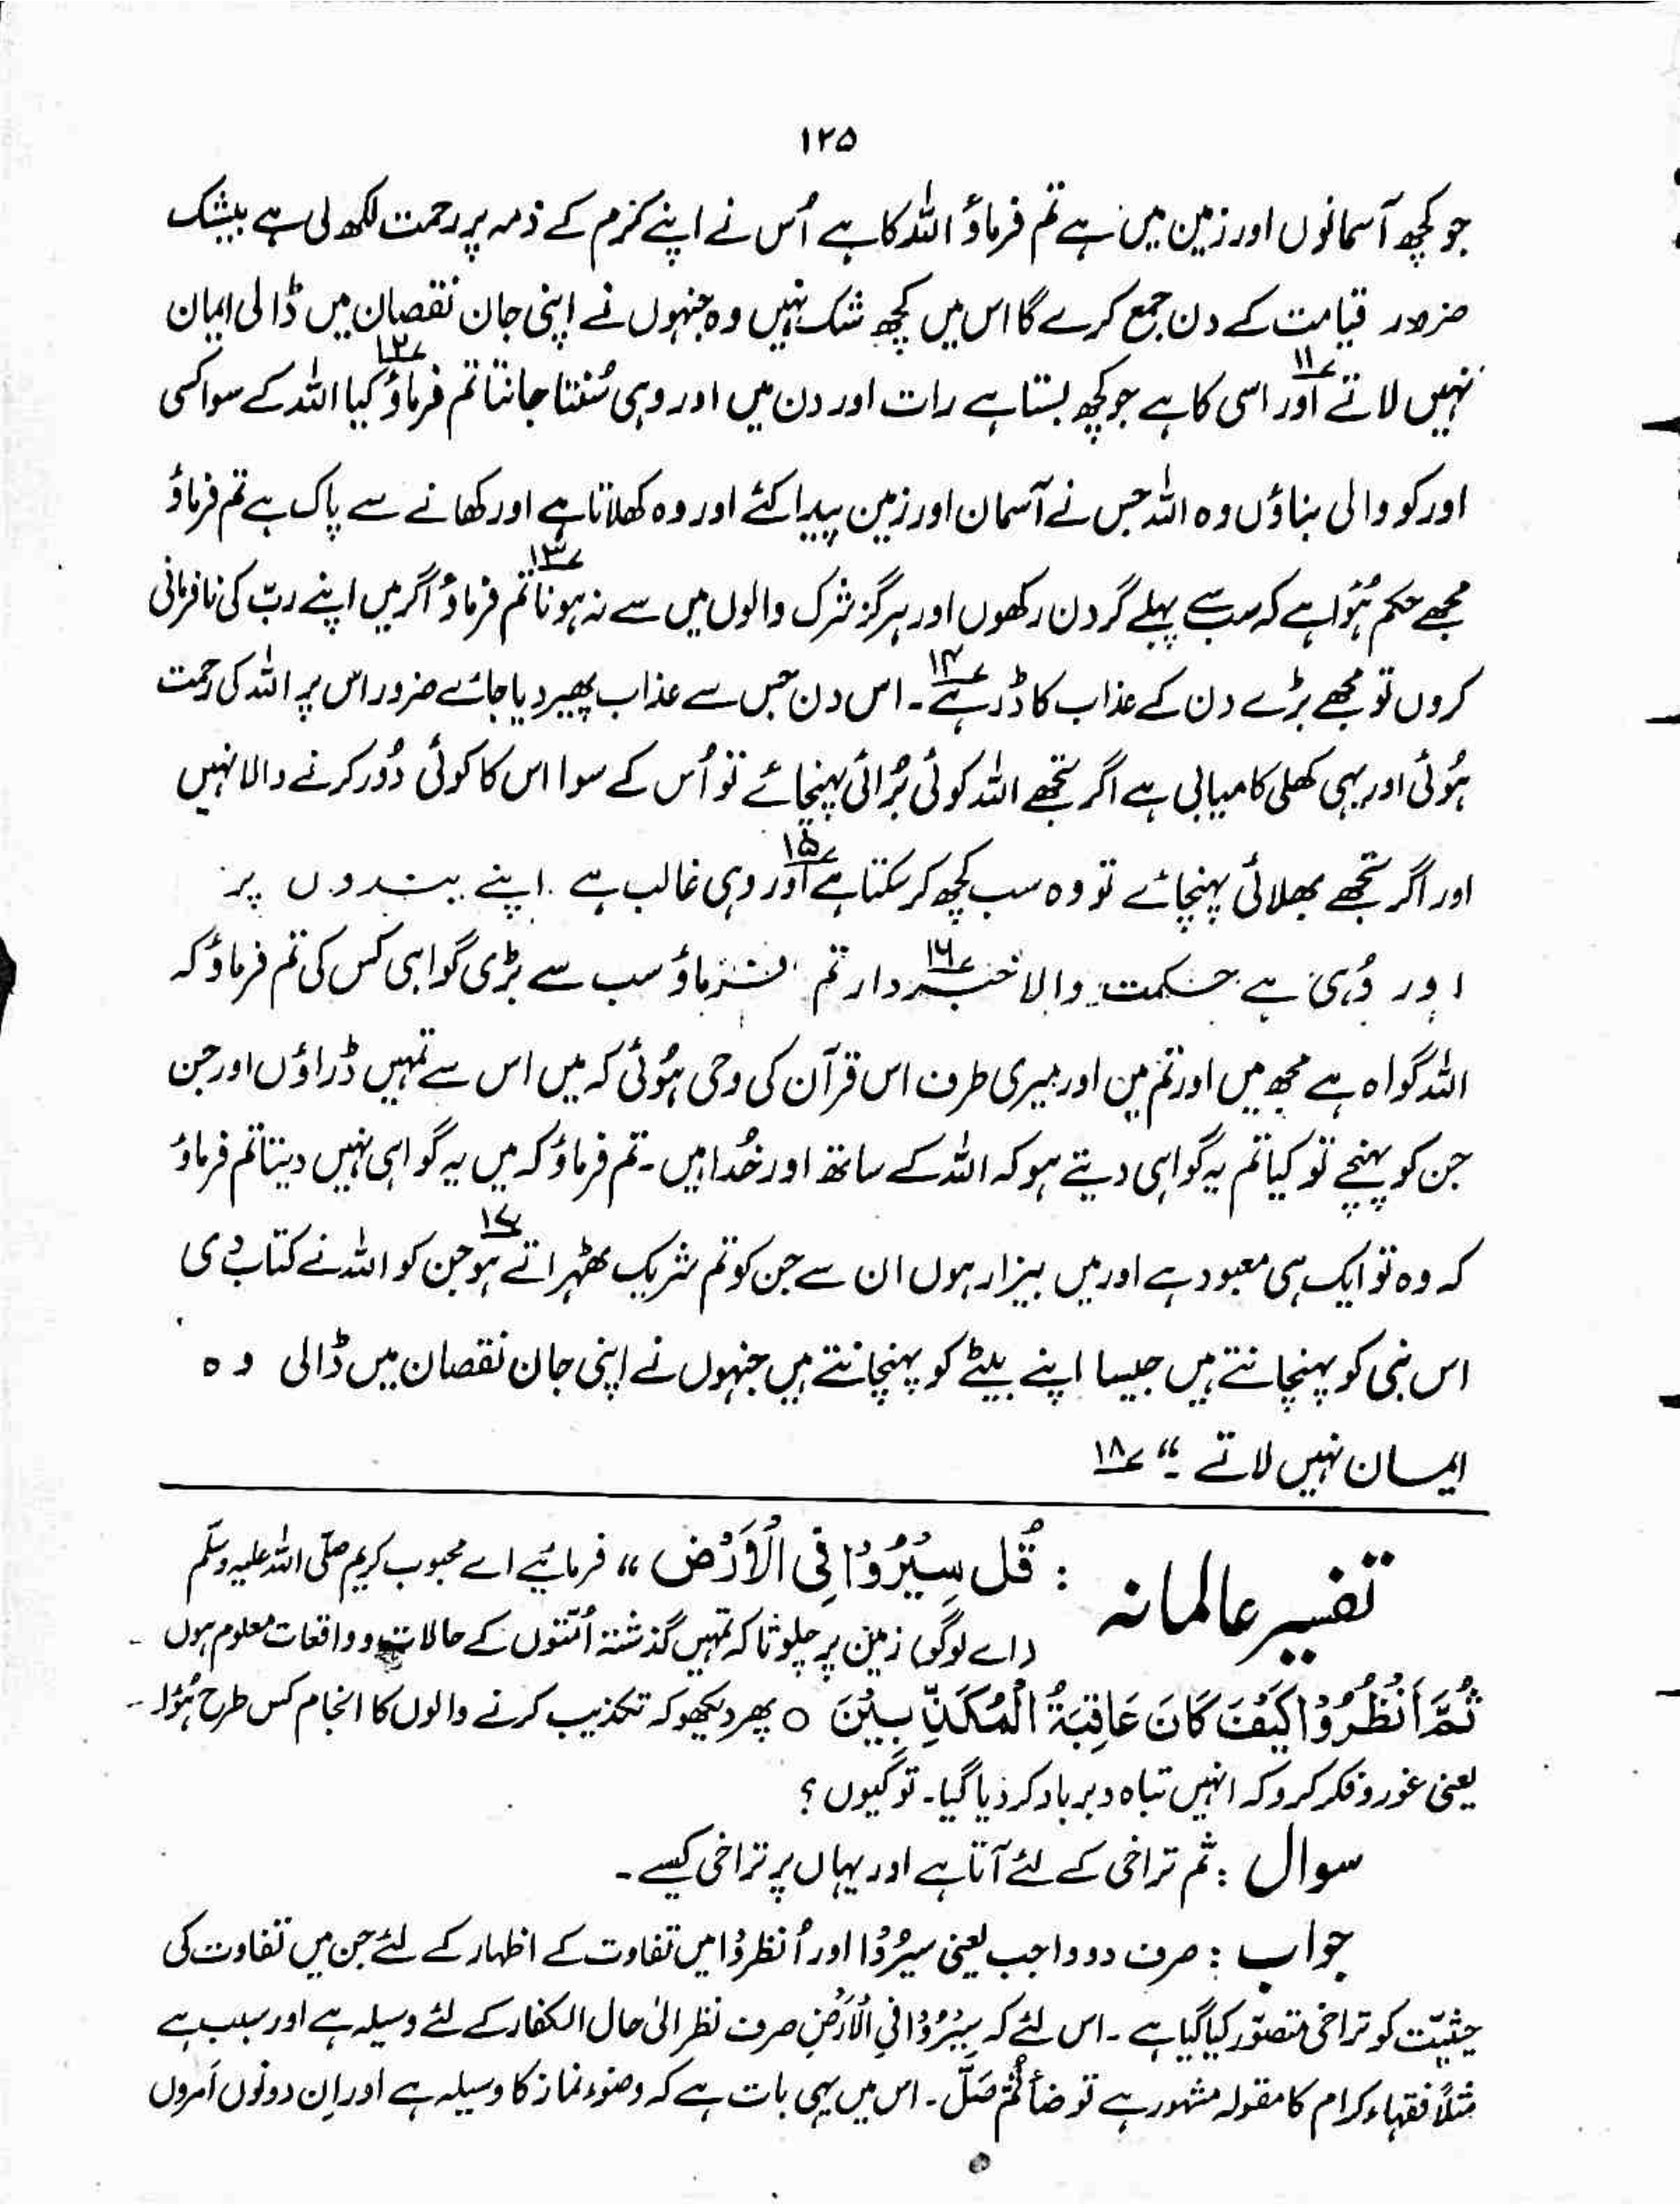 ۱۲۵
جو کچھ آسمانوں اور زمین میں ہے تم فرماؤ اللہ کا ہے اُس نے اپنے کرم کے ذمہ پر رحمت لکھ لی ہے بیشک
ضرور قیامت کے دن جمع کرے گا اس میں کچھ شک نہیں وہ جنہوں نے اپنی جان نقصان میں ڈالی ایمان
نہیں لاتے ؏۱۱ اور اسی کا ہے جو کچھ بستا ہے رات اور دن میں اور وہی سُنتا جانتا ؏۱۲ تم فرماؤ کیا اللہ کے سوا کسی
اور کو والی بناؤں وہ اللہ جس نے آسمان اور زمین پیدا کئے اور وہ کھلاتا ہے اور کھانے سے پاک ہے تم فرماؤ
مجھے حکم ہُوا ہے کہ سب سے پہلے گردن رکھوں اور ہرگز شرک والوں میں سے نہ ہونا ؏۱۳ تم فرماؤ اگر میں اپنے ربّ کی نافرمانی
کروں تو مجھے بڑے دن کے عذاب کا ڈر ہے ؏۱۴ ۔ اس دن جس سے عذاب پھیر دیا جائے ضرور اس پر اللہ کی رحمت
ہُوئی اور یہی کھلی کامیابی ہے اگر تجھے اللہ کوئی بُرائی پہنچائے تو اُس کے سوا اس کا کوئی دُور کرنے والا نہیں
اور اگر تجھے بھلائی پہنچائے تو وہ سب کچھ کر سکتا ہے ؏۱۵ اور وہی غالب ہے اپنے بندوں پر
اور وُہی ہے حکمت والا خبردار ؏۱۶ تم فرماؤ سب سے بڑی گواہی کس کی تم فرماؤ کہ
اللہ گواہ ہے مجھ میں اور تم میں اور میری طرف اس قرآن کی وحی ہُوئی کہ میں اس سے تمہیں ڈراؤں اور جن
جن کو پہنچے تو کیا تم یہ گواہی دیتے ہو کہ اللہ کے ساتھ اور خُدا ہیں ۔ تم فرماؤ کہ میں یہ گواہی نہیں دیتا تم فرماؤ
کہ وہ تو ایک ہی معبود ہے اور میں بیزار ہوں ان سے جن کو تم شریک ٹھہراتے ہو ؏۱۷ جن کو اللہ نے کتاب دی
اس نبی کو پہنچانتے ہیں جیسا اپنے بیٹے کو پہنچانتے ہیں جنہوں نے اپنی جان نقصان میں ڈالی وہ
ایمان نہیں لاتے ۔“ ؏۱۸
تفسیر عالمانہ : قُل سِیْرُوْا فِی الْاَرْض “ فرمائیے اے محبوب کریم صلّی اللہ علیہ وسلّم
(اے لوگو) زمین پر چلو تاکہ تمہیں گذشتہ اُمّتوں کے حالات و واقعات معلوم ہوں ۔
ثُمَّ اَنْظُرُوْا کَیْفَ کَانَ عَاقِبَةُ الْمُکَذِّبِیْنَ ○ پھر دیکھو کہ تکذیب کرنے والوں کا انجام کس طرح ہُوا ۔
یعنی غور و فکر کرو کہ انہیں تباہ و برباد کر دیا گیا ۔ تو کیوں ؟
سوال : ثم تراخی کے لئے آتا ہے اور یہاں پر تراخی کیسے ۔
جواب : صرف دو واجب یعنی سیرُوْا اور اُنظروْا میں تفاوت کے اظہار کے لئے جن میں تفاوت کی
حیثیّت کو تراخی متصوّر کیا گیا ہے ۔ اس لئے کہ سِیْرُوْا فِی الْاَرْضِ صرف نظر الیٰ حال الکفار کے لئے وسیلہ ہے اور سبب ہے
مثلاً فقہاء کرام کا مقولہ مشہور ہے توضأ ثُمّ صَلّ ۔ اس میں یہی بات ہے کہ وضوء نماز کا وسیلہ ہے اور اِن دونوں اَمروں